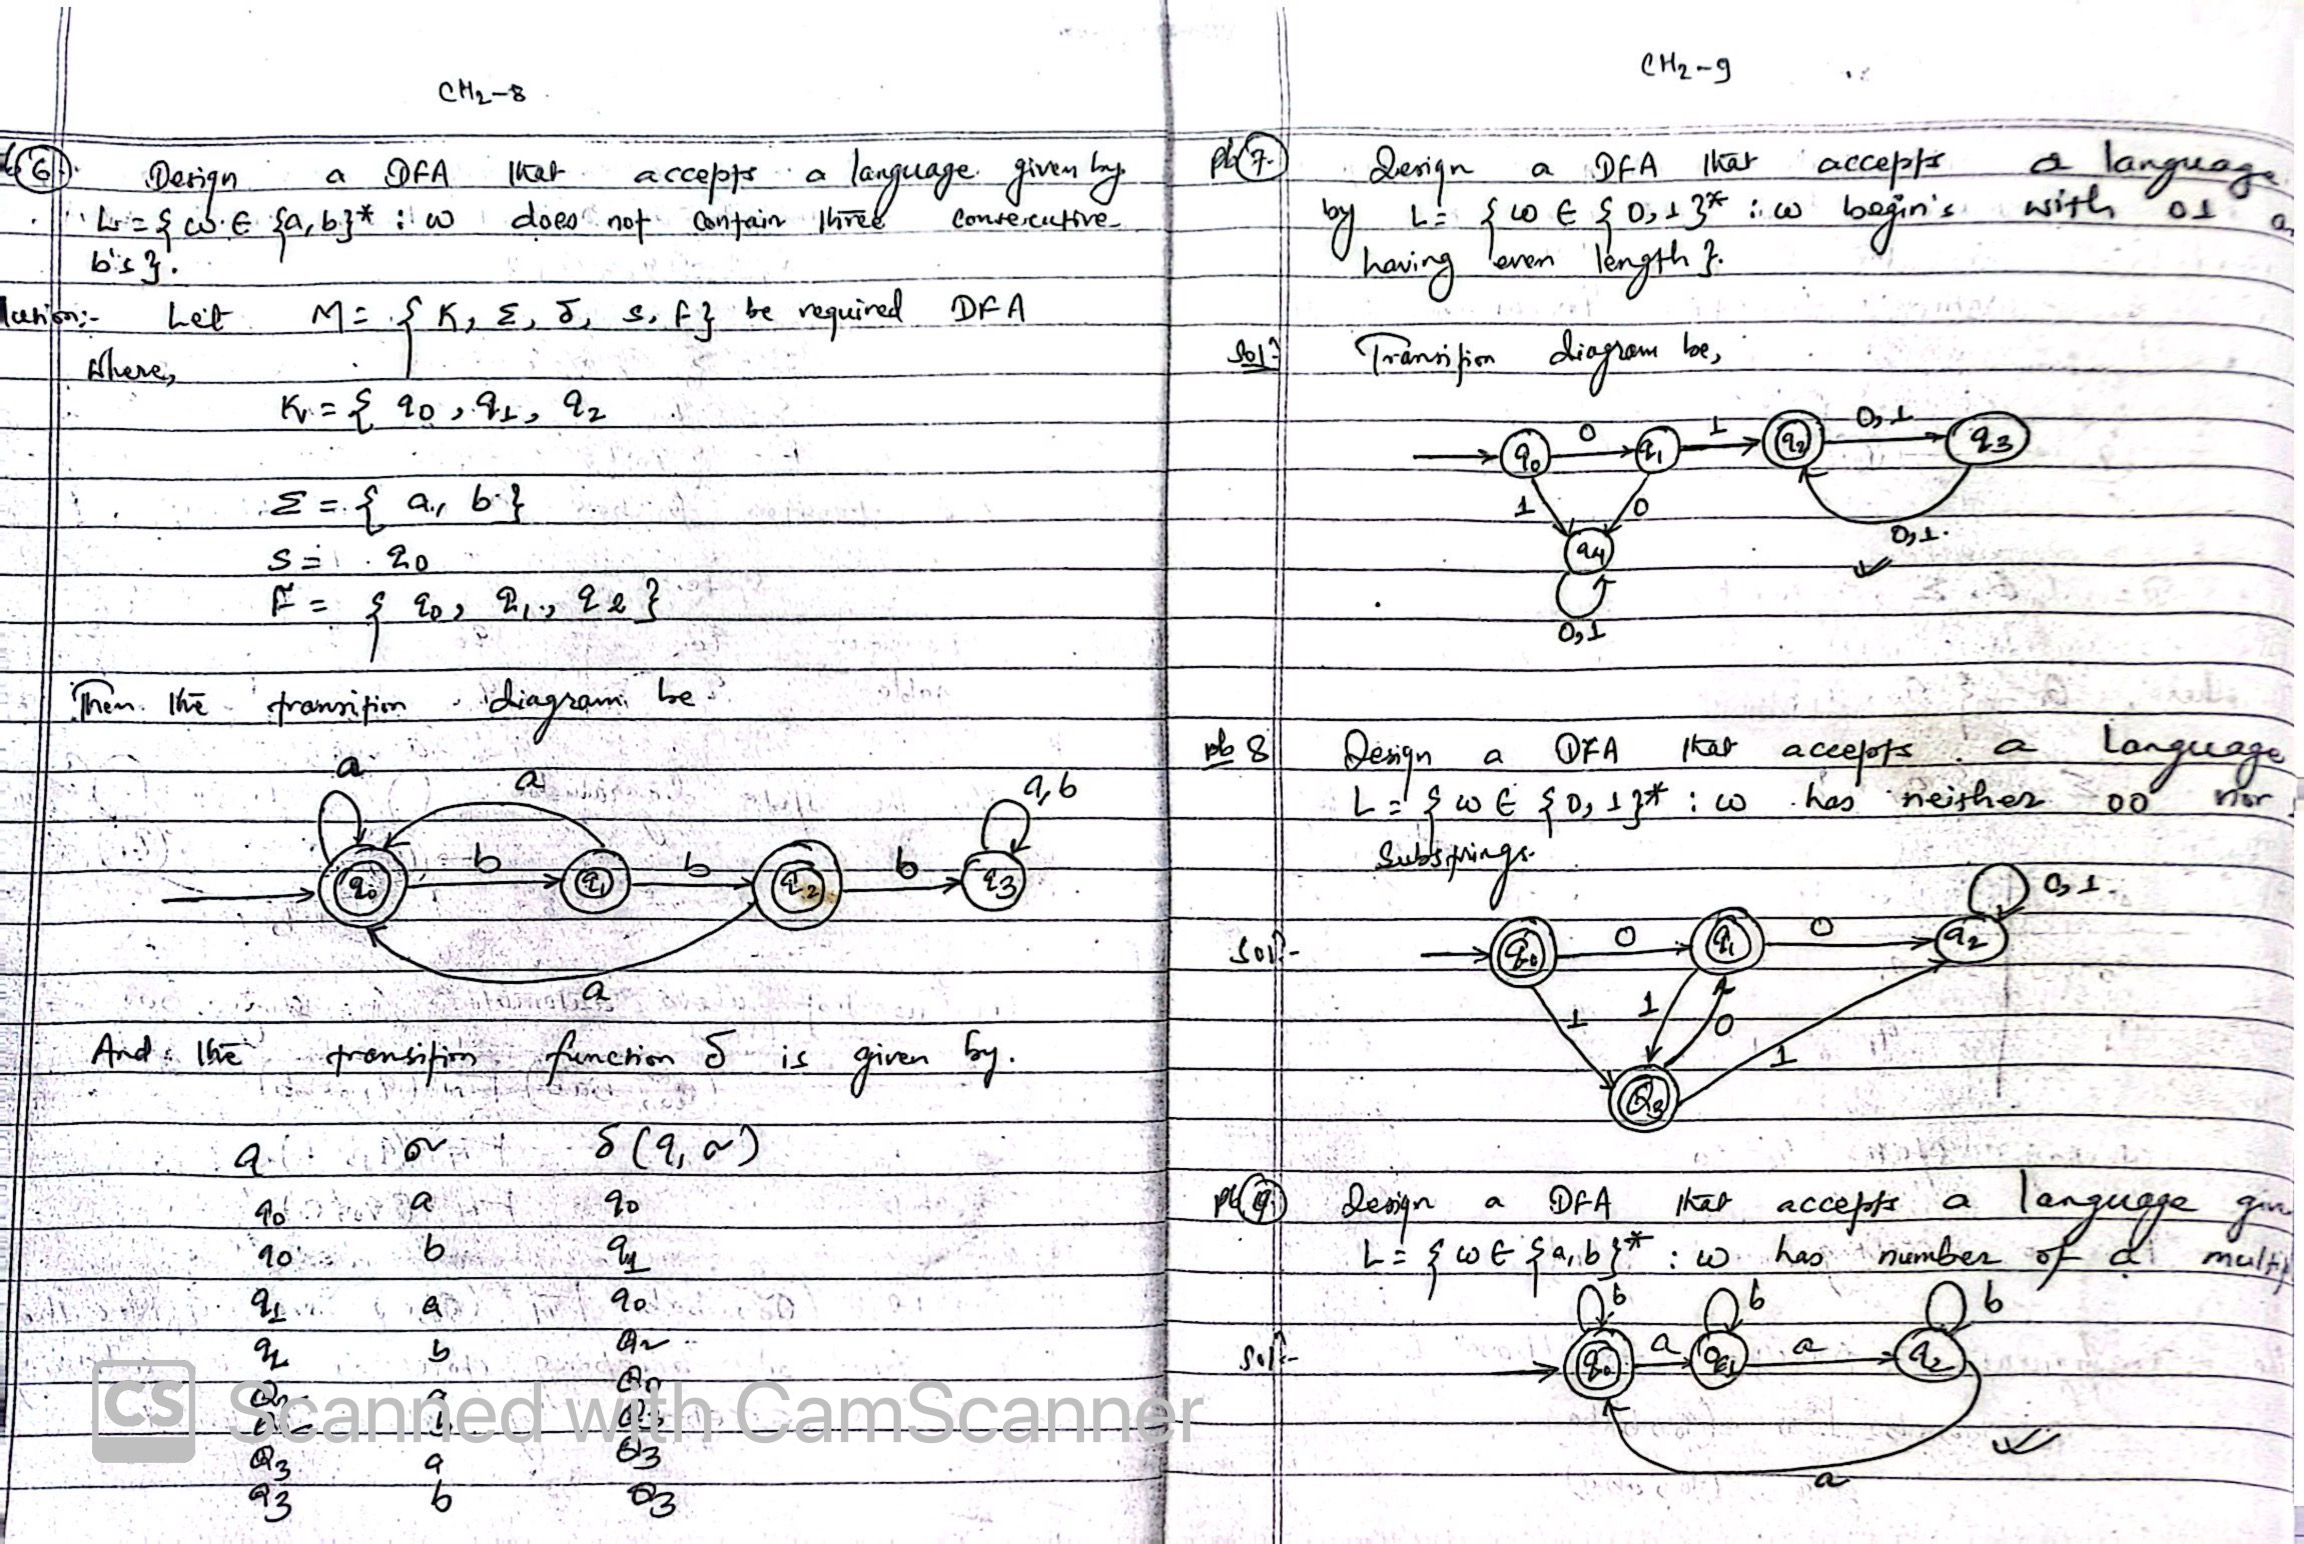 CH2-8
6. Design a DFA that accepts a language given by
L = { ω ∈ {a, b}* : ω does not contain three consecutive
b's }.
Let M = { K, Σ, δ, s, F } be required DFA
Where,
K = { q0, q1, q2
Σ = { a, b }
S = q0
F = { q0, q1, q2 }
Then the transition diagram be
a a a, b
q0 b q1 b q2 b q3
a
And the transition function δ is given by.
q σ δ(q, σ)
q0 a q0
q0 b q1
q1 a q0
q1 b q2
q2 a q0
q2 b q3
q3 a q3
q3 b q3
CS Scanned with CamScanner
CH2-9
pb 7. Design a DFA that accepts a language
by L = { ω ∈ { 0, 1 }* : ω begin's with 01
having even length }.
Soln Transition diagram be,
q0 0 q1 1 q2 0,1 q3
1 0 0,1.
q4
0,1
pb 8 Design a DFA that accepts a Language
L = { ω ∈ { 0, 1 }* : ω has neither 00 nor
Substrings.
0, 1.
Soln:- q0 0 q1 0 q2
1 1 0 1
q3
pb 9. Design a DFA that accepts a language
L = { ω ∈ { a, b }* : ω has number of a
b b b
Soln:- q0 a q1 a q2
a